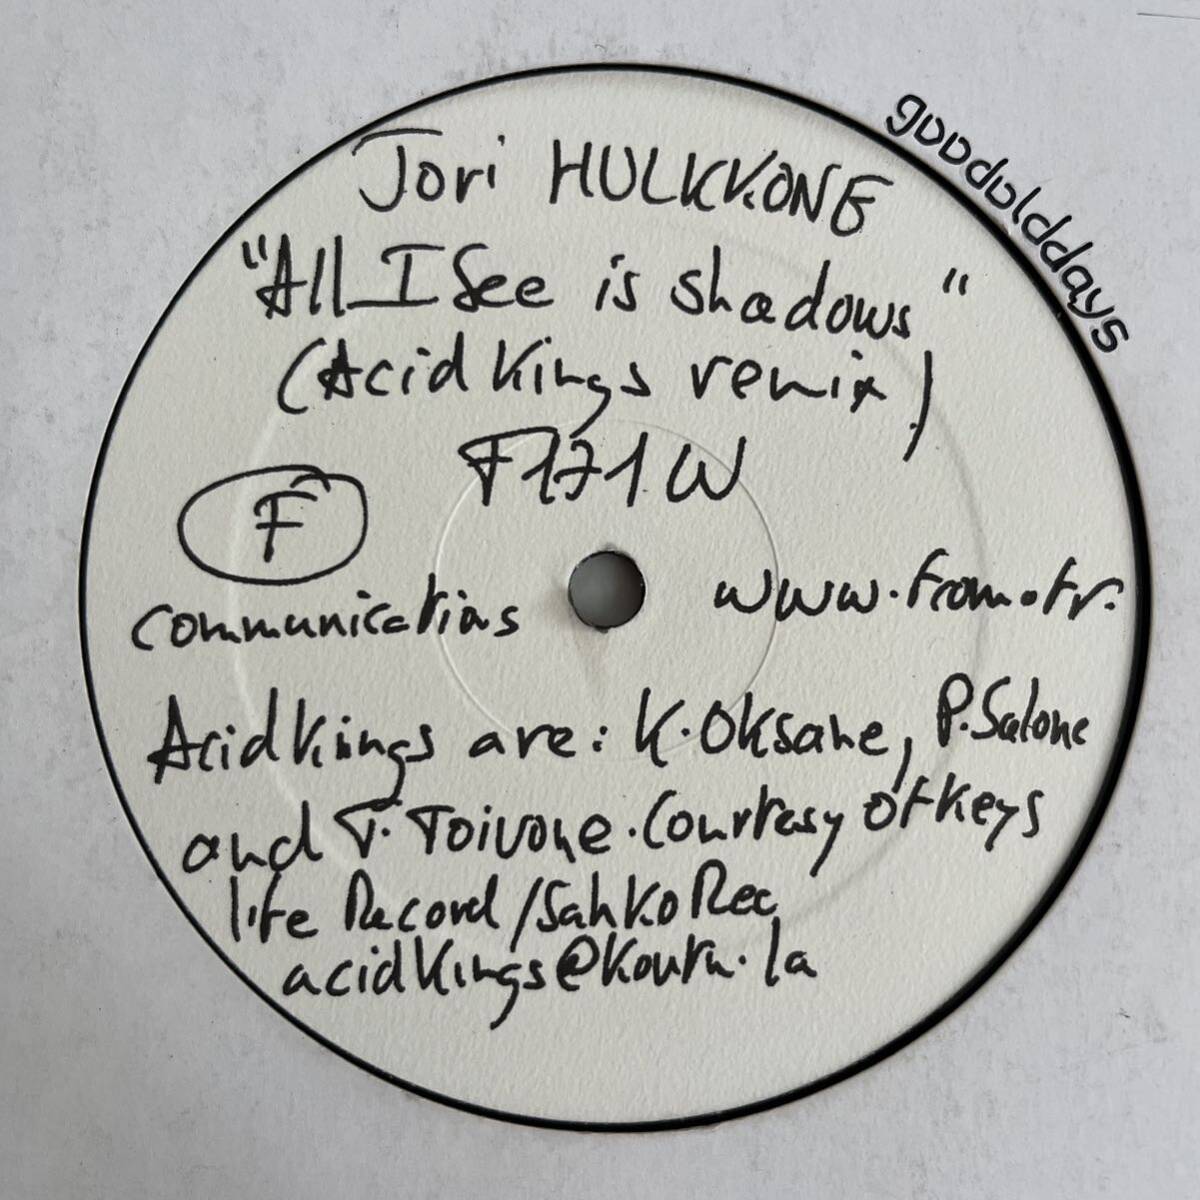 Jori HULKKONE
"All I See is shadows"
(Acid Kings remix)
F171W
F
communications
www.fcom.fr.
Acid Kings are: K.Oksane, P.Salone
and T. Toivone. Courtesy of Keys
life Record/Sahko Rec
acidkings@koura.la
goodolddays